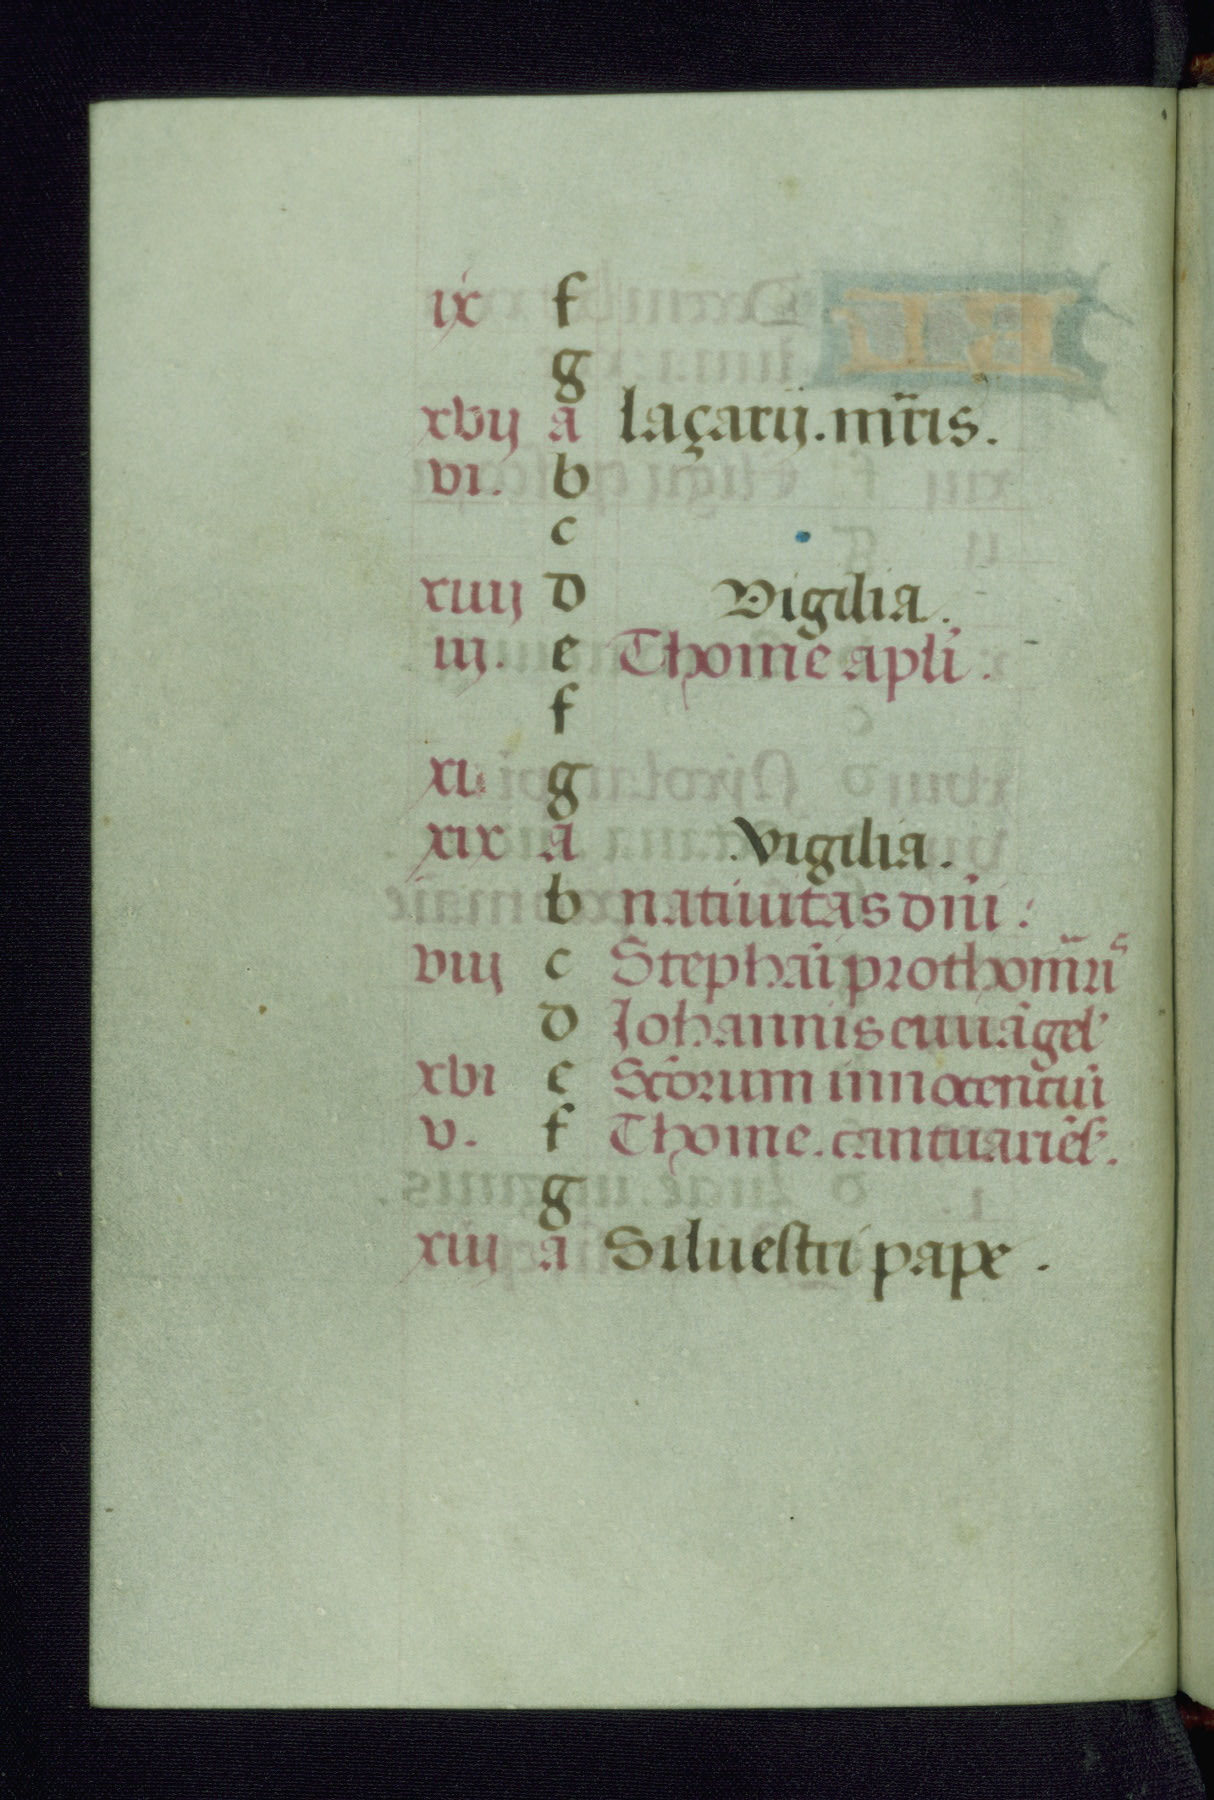 ix f
g
xvij a laçarij. mr̃is.
vi. b
c
xiiij d Vigilia.
iij. e Thome apl̃i.
f
xi g
xix a .Vigilia.
b natiuitas dñi:
viij c Stephãi prothom̃ris
d Johannis euuãgel'
xvi e Sc̃orum innocentũ
v. f Thome. cantuariẽs.
g
xiij a Siluestri pape.